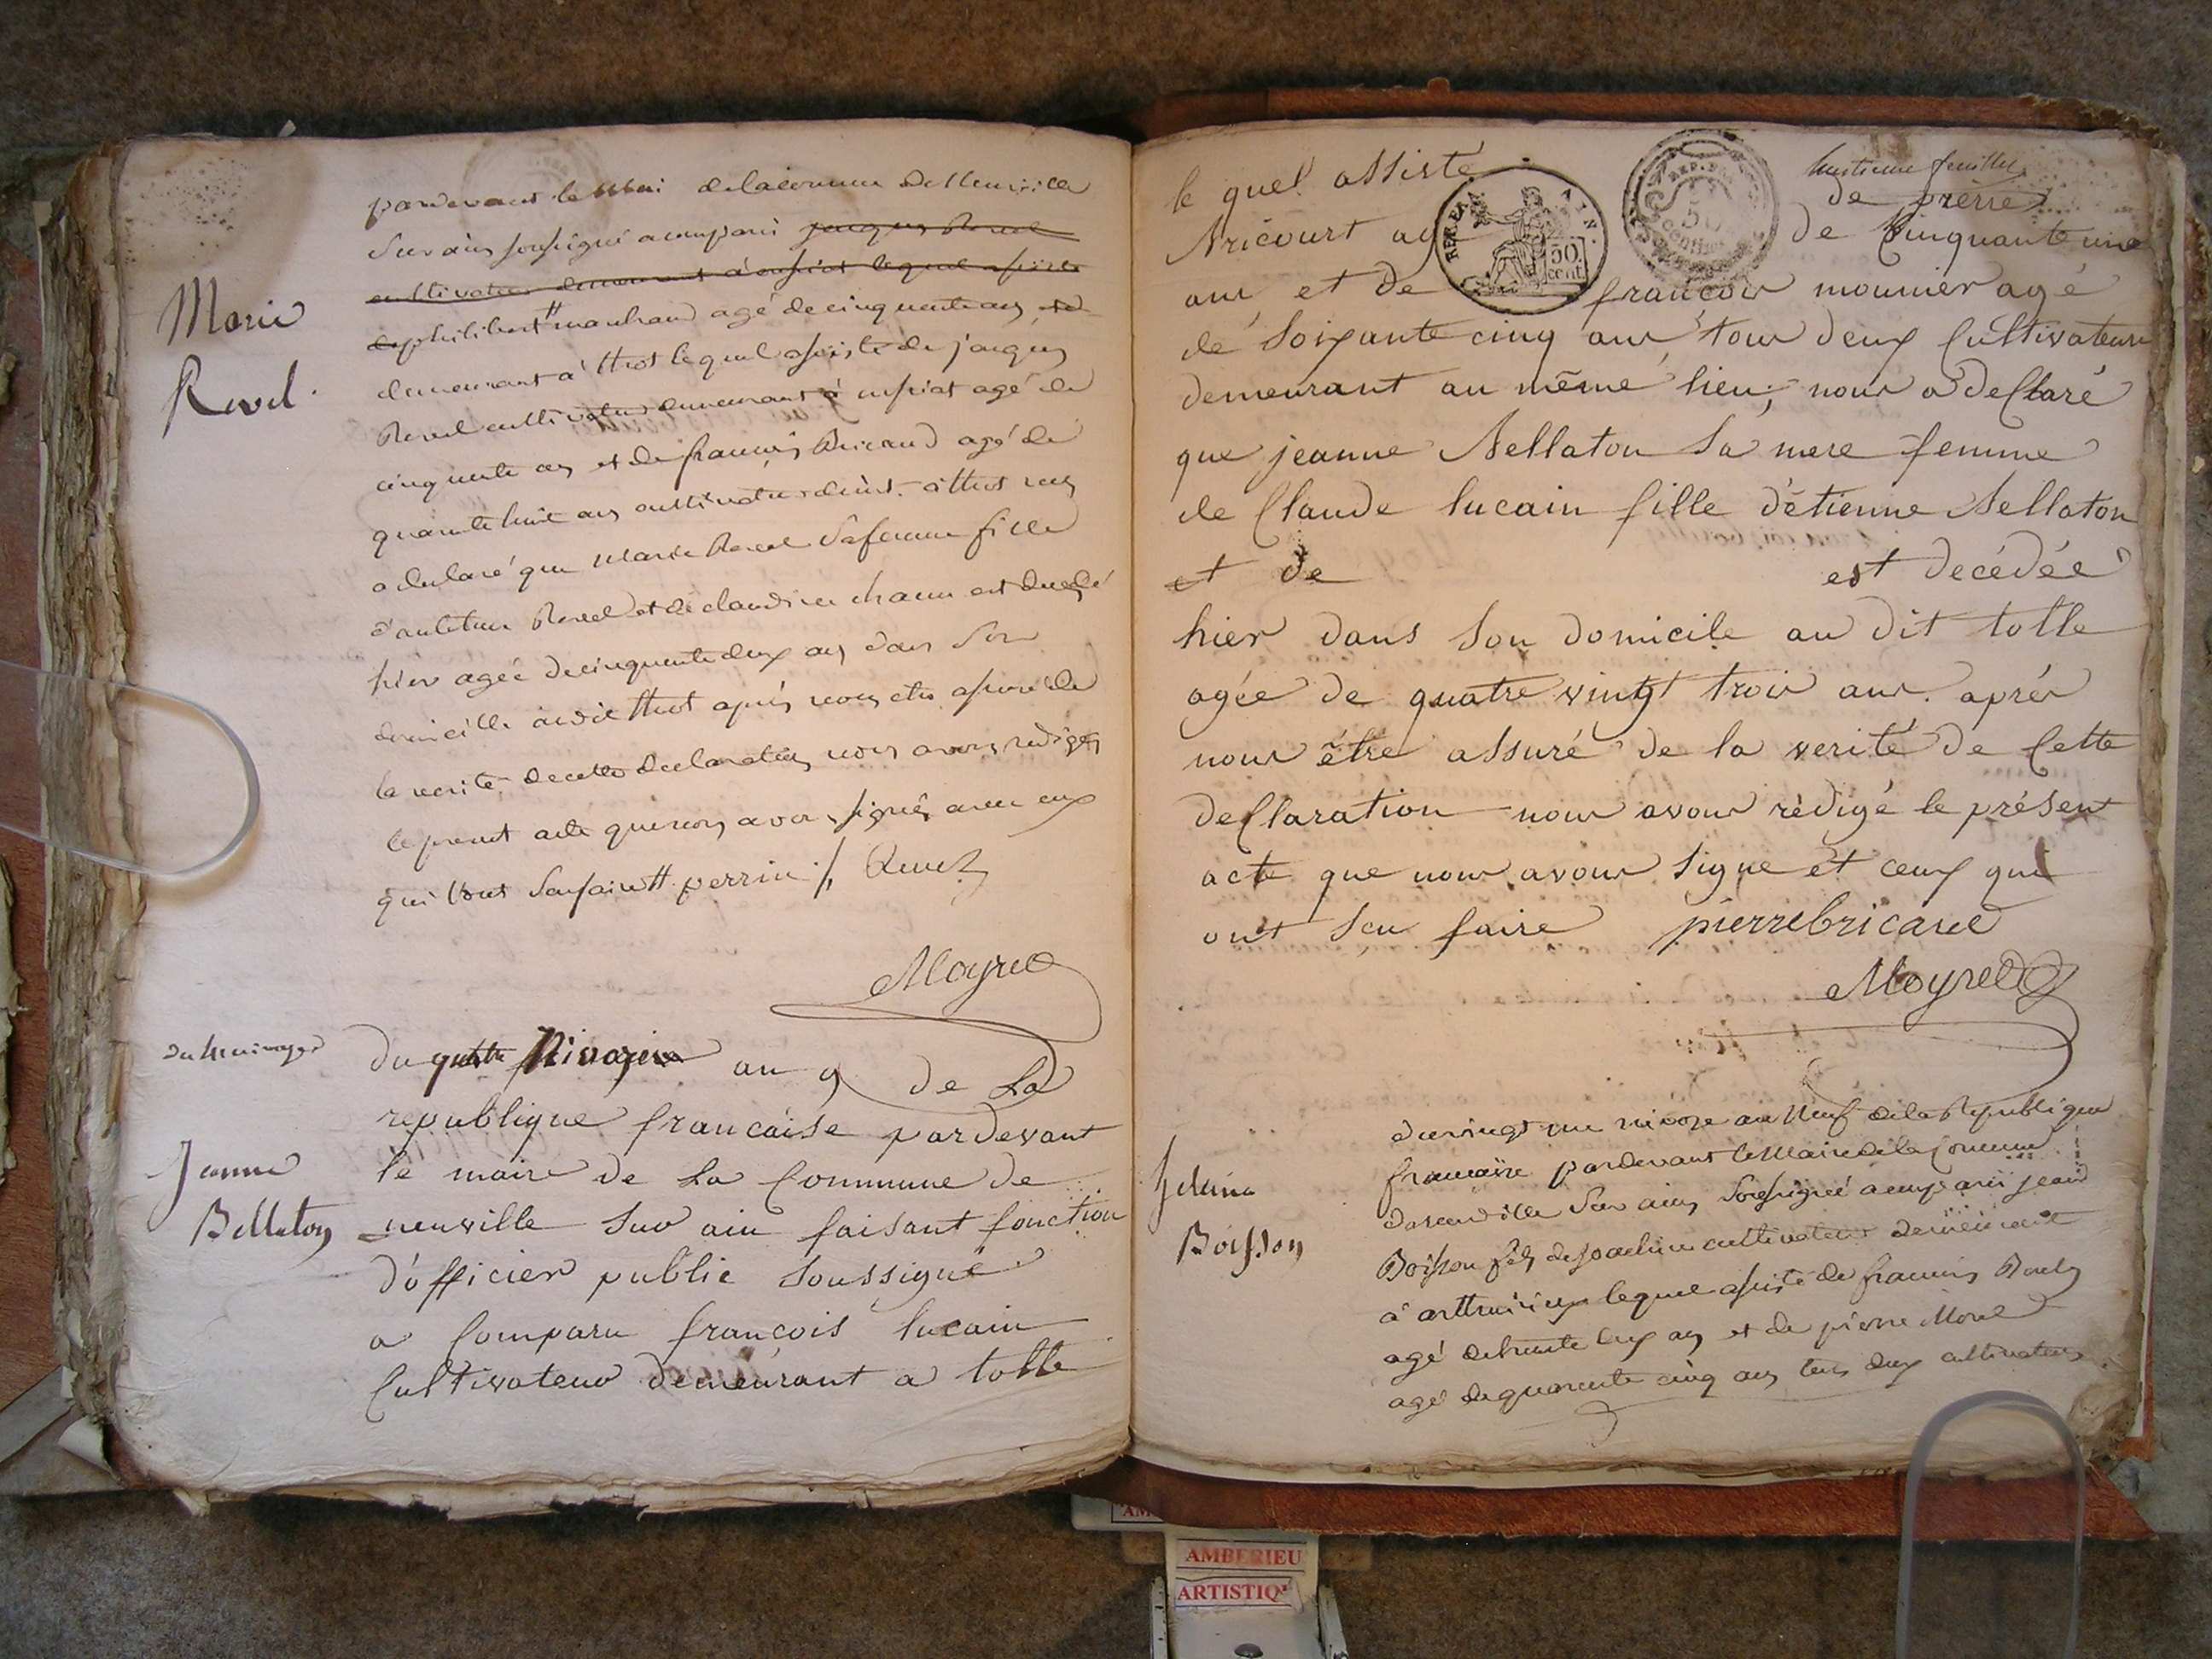 pardevant le Mai de la comune de Neuville
Sur ains soussigné a comparu jaques Revel
cultivateur demeurant à cuisiat lequel assisté
de philibert marchand agé de cinquante ans
demeurant à thol lequel assisté de jaques
Revel cultivateur demeurant à cusiat agé de
cinquante ans et de francois Bricand agé de
quarante huit ans cultivateur à thol nous
a declaré que Marie Revel Sa femme fille
d'antoine Revel et de claudine est decedé
hier agée de cinquante deux ans dans Son
domicille audit thol après nous etre assuré de
la verité de cette declaration nous avons redigés
le present acte que nous avons signés avec eux
qui l'ont Seu faire H perrin /. Revel
Moyret
Marie
Revel.
du 4 nivoze
du quatre Nivoze an 9 de La
republique francaise pardevant
le maire de La Commune de
neuville Sur ain faisant fonction
d'officier public Soussigné
a Comparu francois lucain
Cultivateur demeurant a tolle
Jeanne
Bellaton
huitieme feuillet
le quel assisté de pierre
Bricourt agé de Cinquante une
ans et de francois mounier agé
de Soixante cinq ans tous deux Cultivateurs
demeurant au même lieu, nous a declaré
que jeanne Bellaton Sa mere femme
de Claude lucain fille d'étienne Bellaton
et de est decédée
hier dans Son domicile au dit tolle
agée de quatre vingt trois ans. aprés
nous être assuré de la verité de Cette
declaration nous avons rédigé le présent
acte que nous avons Signe et ceux qui
ont Seu faire pierre bricand
Moyret
REP. FRA. AIN.
50
cent.
REP. FRA.
50
centimes
du vingt une nivoze an Neuf de la Republique
francaise pardevant le Maire de la Comune
de neuville Sur ains Soussigné a comparu jean
Boisson fils de joachim cultivateur demeurant
à lequel assisté de francois
agé de trente ans et de pierre Morel
agé de quarante cinq ans tous deux cultivateurs
Boisson
AMBERIEU
ARTISTIQ